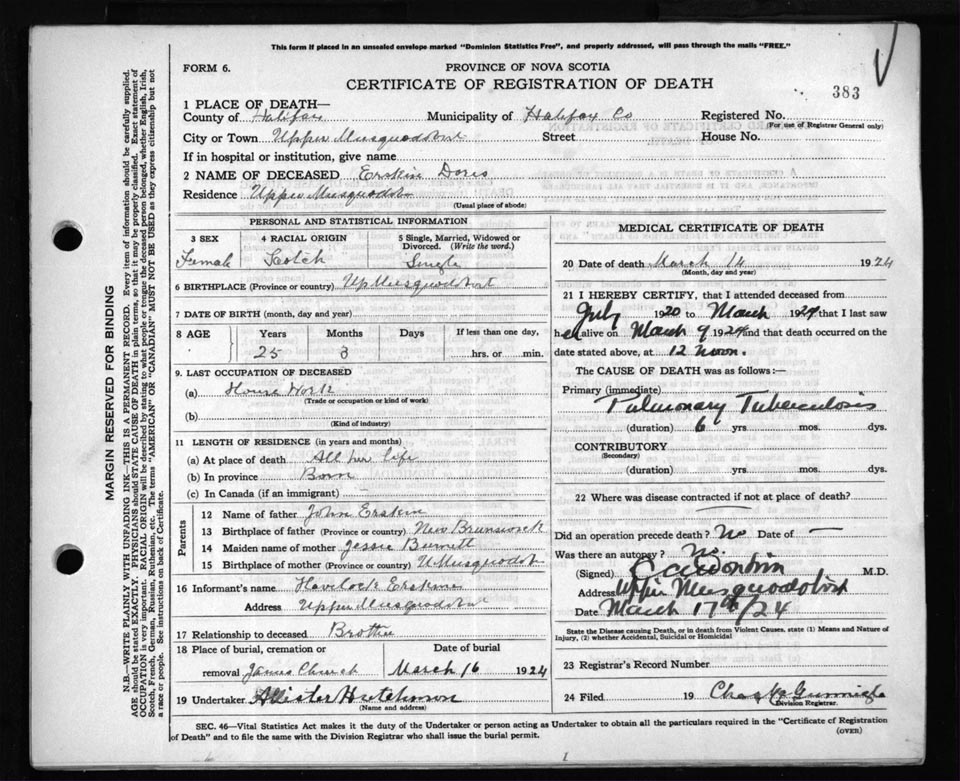 This form if placed in an unsealed envelope marked "Dominion Statistics Free", and properly addressed, will pass through the mails "FREE."
FORM 6.
PROVINCE OF NOVA SCOTIA
CERTIFICATE OF REGISTRATION OF DEATH
383
1 PLACE OF DEATH—
County of Halifax Municipality of Halifax Co Registered No.
(For use of Registrar General only)
City or Town Upper Musquodobit Street House No.
If in hospital or institution, give name
2 NAME OF DECEASED Erskin Doris
Residence Upper Musquodobit
(Usual place of abode)
PERSONAL AND STATISTICAL INFORMATION
3 SEX 4 RACIAL ORIGIN 5 Single, Married, Widowed or Divorced. (Write the word.)
Female Scotch Single
6 BIRTHPLACE (Province or country) Up Musquodobit
7 DATE OF BIRTH (month, day and year)
8 AGE Years Months Days If less than one day,
25 3 hrs. or min.
9. LAST OCCUPATION OF DECEASED
(a) House Work
(Trade or occupation or kind of work)
(b)
(Kind of industry)
11 LENGTH OF RESIDENCE (in years and months)
(a) At place of death All her life
(b) In province Born
(c) In Canada (if an immigrant)
Parents
12 Name of father John Erskin
13 Birthplace of father (Province or country) New Brunswick
14 Maiden name of mother Jessie Burnett
15 Birthplace of mother (Province or country) U Musquodobit
16 Informant's name Havelock Erskine
Address Upper Musquodobit
17 Relationship to deceased Brother
18 Place of burial, cremation or Date of burial
removal James Church March 16 1924
19 Undertaker Allister Hutchinson
(Name and address)
MEDICAL CERTIFICATE OF DEATH
20 Date of death March 14 1924
(Month, day and year)
21 I HEREBY CERTIFY, that I attended deceased from
July 1920 to March 1924 that I last saw
her alive on March 9 1924 and that death occurred on
date stated above, at 12 Noon.
The CAUSE OF DEATH was as follows:—
Primary (immediate)
Pulmonary Tuberculosis
(duration) 6 yrs. mos. dys.
CONTRIBUTORY
(Secondary)
(duration) yrs. mos. dys.
22 Where was disease contracted if not at place of death?
Did an operation precede death? No Date of —
Was there an autopsy? No.
(Signed) M.D.
Address Upper Musquodobit
Date March 17th/24
State the Disease causing Death, or in death from Violent Causes, state (1) Means and Nature of Injury, (2) whether Accidental, Suicidal or Homicidal
23 Registrar's Record Number
24 Filed 19 Chas
Division Registrar.
SEC. 46—Vital Statistics Act makes it the duty of the Undertaker or person acting as Undertaker to obtain all the particulars required in the "Certificate of Registration of Death" and to file the same with the Division Registrar who shall issue the burial permit.
(OVER)
MARGIN RESERVED FOR BINDING
N.B.—WRITE PLAINLY WITH UNFADING INK—THIS IS A PERMANENT RECORD. Every item of information should be carefully supplied.
AGE should be stated EXACTLY. PHYSICIANS should STATE CAUSE OF DEATH in plain terms, so that it may be properly classified. Exact statement of
OCCUPATION is very important. RACIAL ORIGIN will be described by stating to what people or tongue the deceased person belonged, whether English, Irish,
Scotch, French, German, Russian, Ruthenian, etc. The terms "AMERICAN" OR "CANADIAN" MUST NOT BE USED as they express citizenship but not
a race or people. See instructions on back of Certificate.